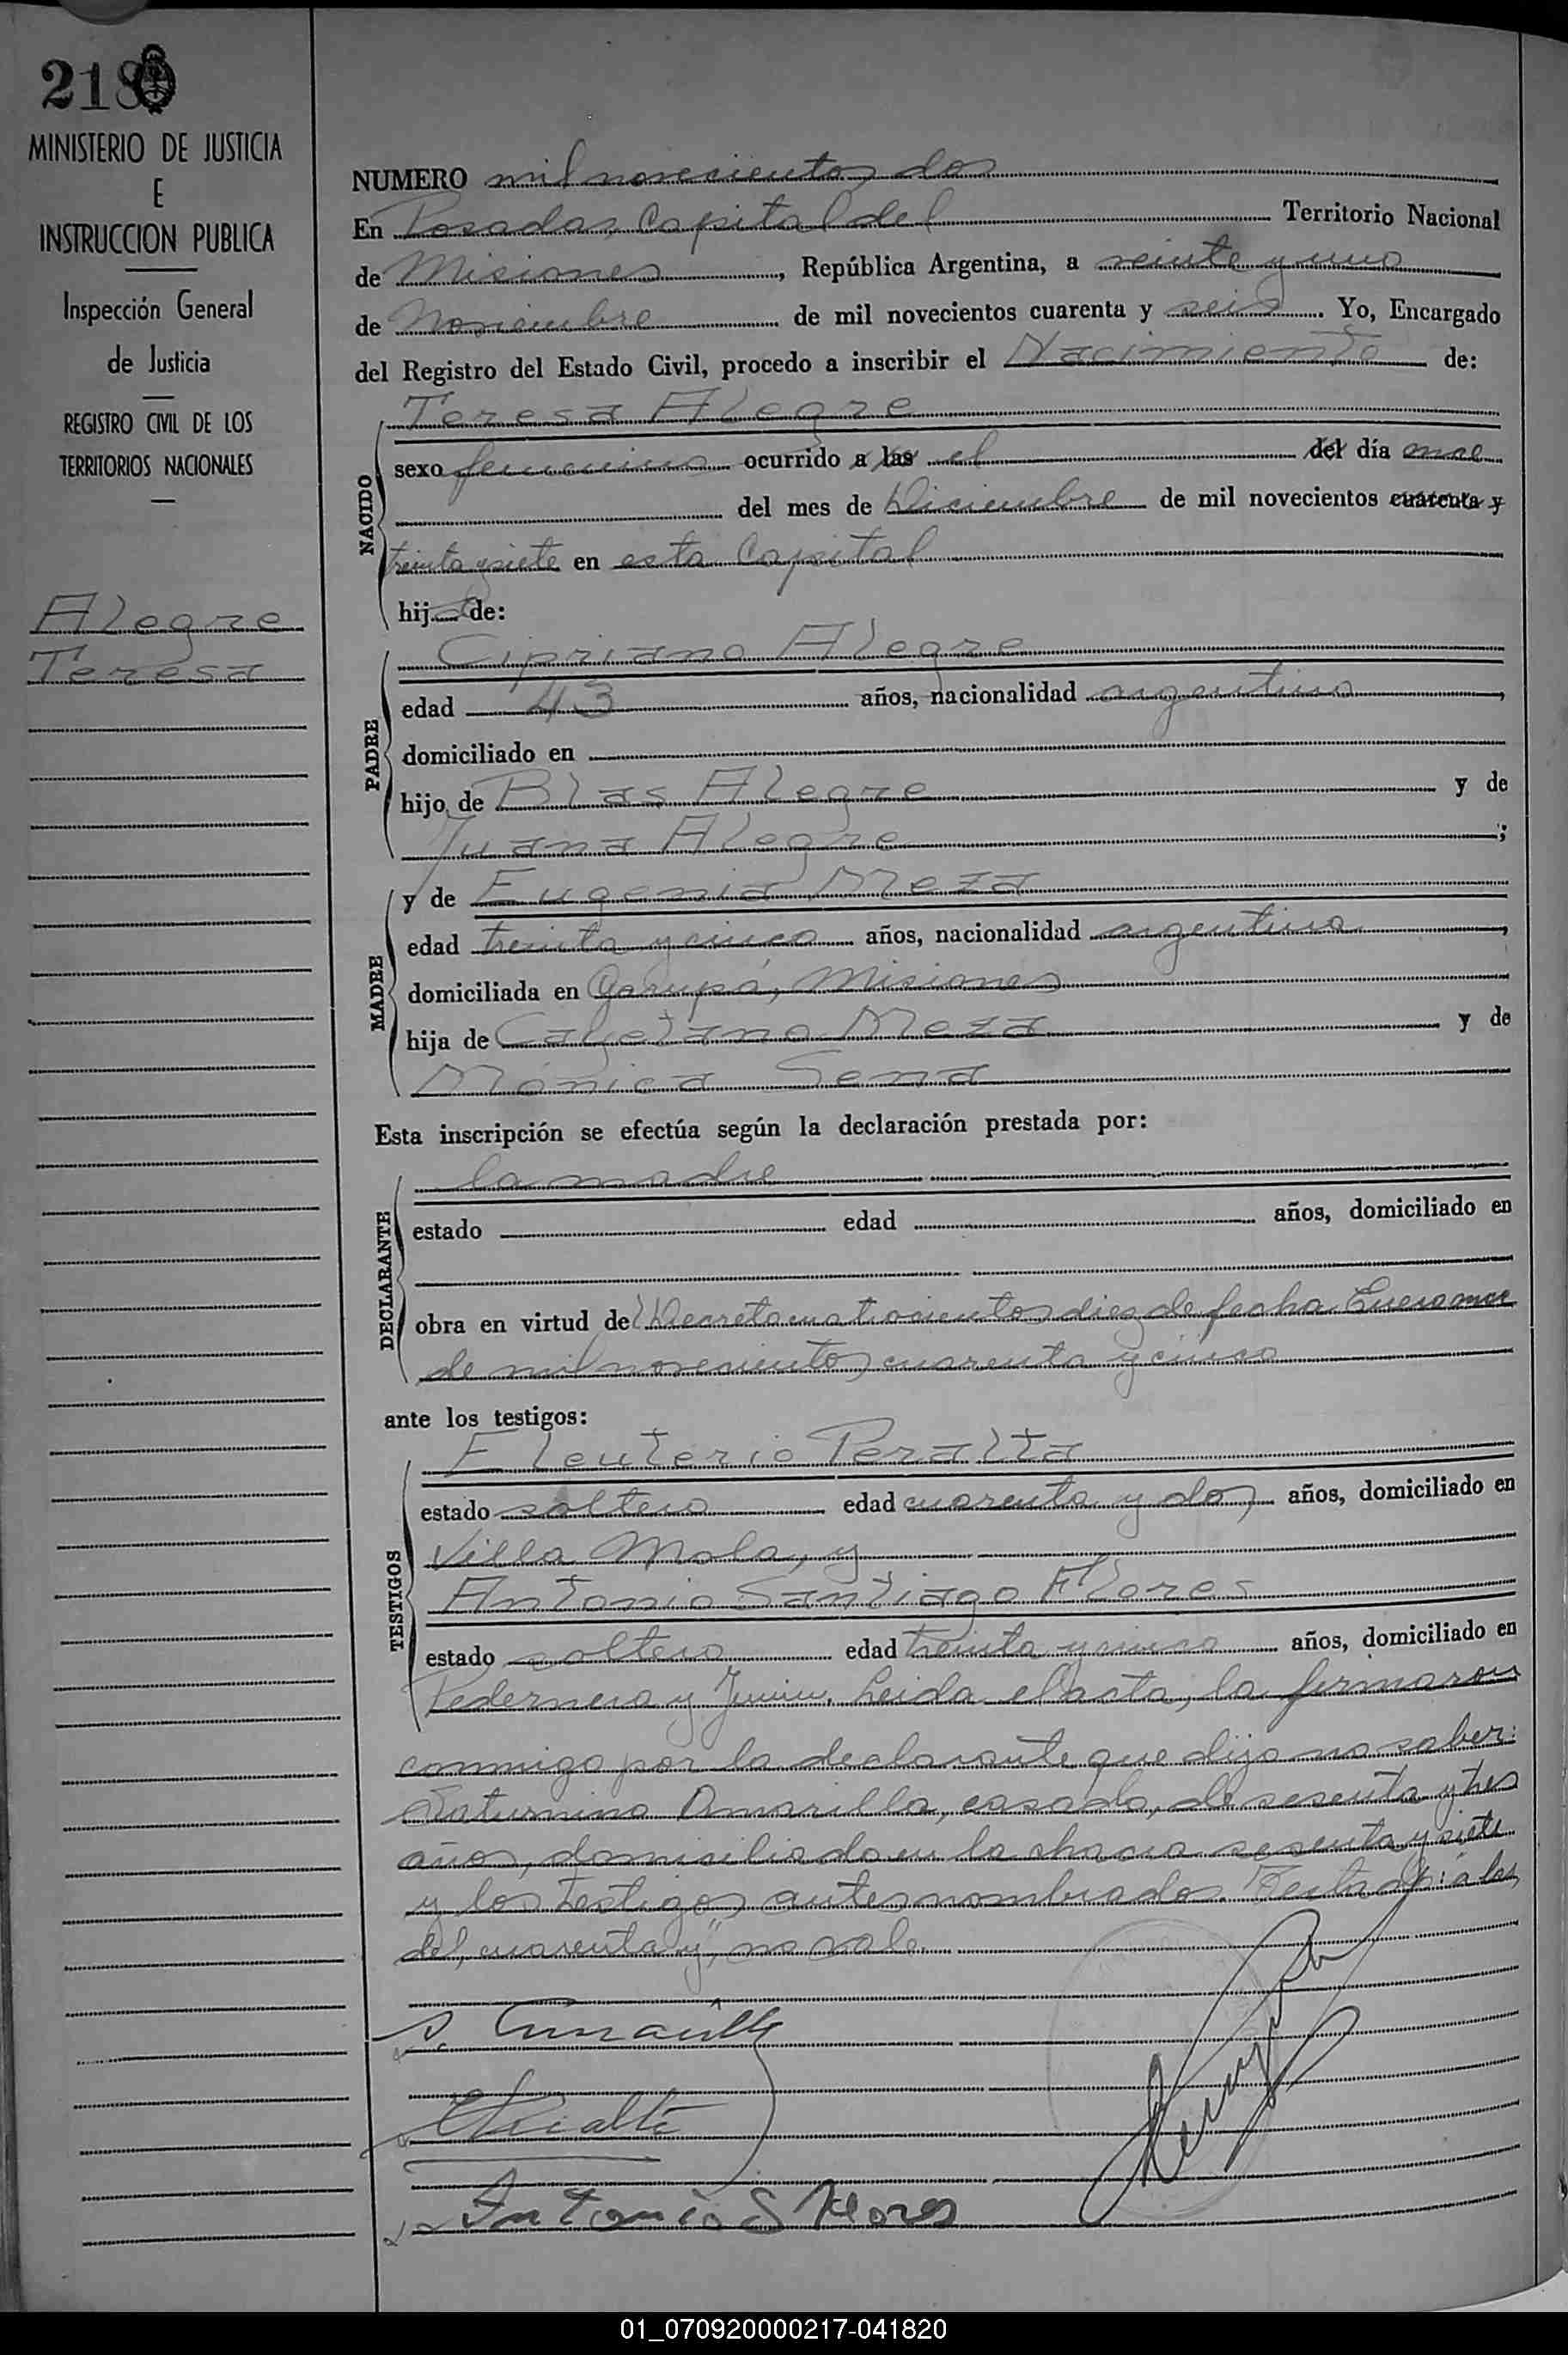 218
MINISTERIO DE JUSTICIA
E
INSTRUCCION PUBLICA
Inspección General
de Justicia
REGISTRO CIVIL DE LOS
TERRITORIOS NACIONALES
Alegre
Teresa
NUMERO mil novecientos dos
En Posadas, Capital del Territorio Nacional
de Misiones, República Argentina, a veinte y uno
de Noviembre de mil novecientos cuarenta y seis. Yo, Encargado
del Registro del Estado Civil, procedo a inscribir el Nacimiento de:
NACIDO
Teresa Alegre
sexo femenino ocurrido a las el del día once
del mes de Diciembre de mil novecientos cuarenta y
treinta y siete en esta Capital
hija de:
PADRE
Cipriano Alegre
edad 43 años, nacionalidad argentino
domiciliado en
hijo de Blas Alegre y de
Juana Alegre;
MADRE
y de Eugenia Meza
edad treinta y cinco años, nacionalidad argentina,
domiciliada en Garupá, Misiones
hija de Cayetano Meza y de
Mónica Sena
Esta inscripción se efectúa según la declaración prestada por:
DECLARANTE
la madre
estado edad años, domiciliado en
obra en virtud del Decreto cuatrocientos diez de fecha Enero once
de mil novecientos cuarenta y cinco
ante los testigos:
TESTIGOS
Eleuterio Peralta
estado soltero edad cuarenta y dos, años, domiciliado en
Villa Mola, y
Antonio Santiago Flores
estado soltero edad treinta y cinco años, domiciliado en
Pedernera y Junin. Leida el acta, la firmaron
conmigo por la declarante que dijo no saber:
Saturnino Amarilla, casado, de sesenta y tres
años, domiciliado en la chacra sesenta y siete
y los testigos antes nombrados. Testado: a las
del, cuarenta y", no vale
S. Amarilla
EPeralta
Antonio S Flores
01_070920000217-041820